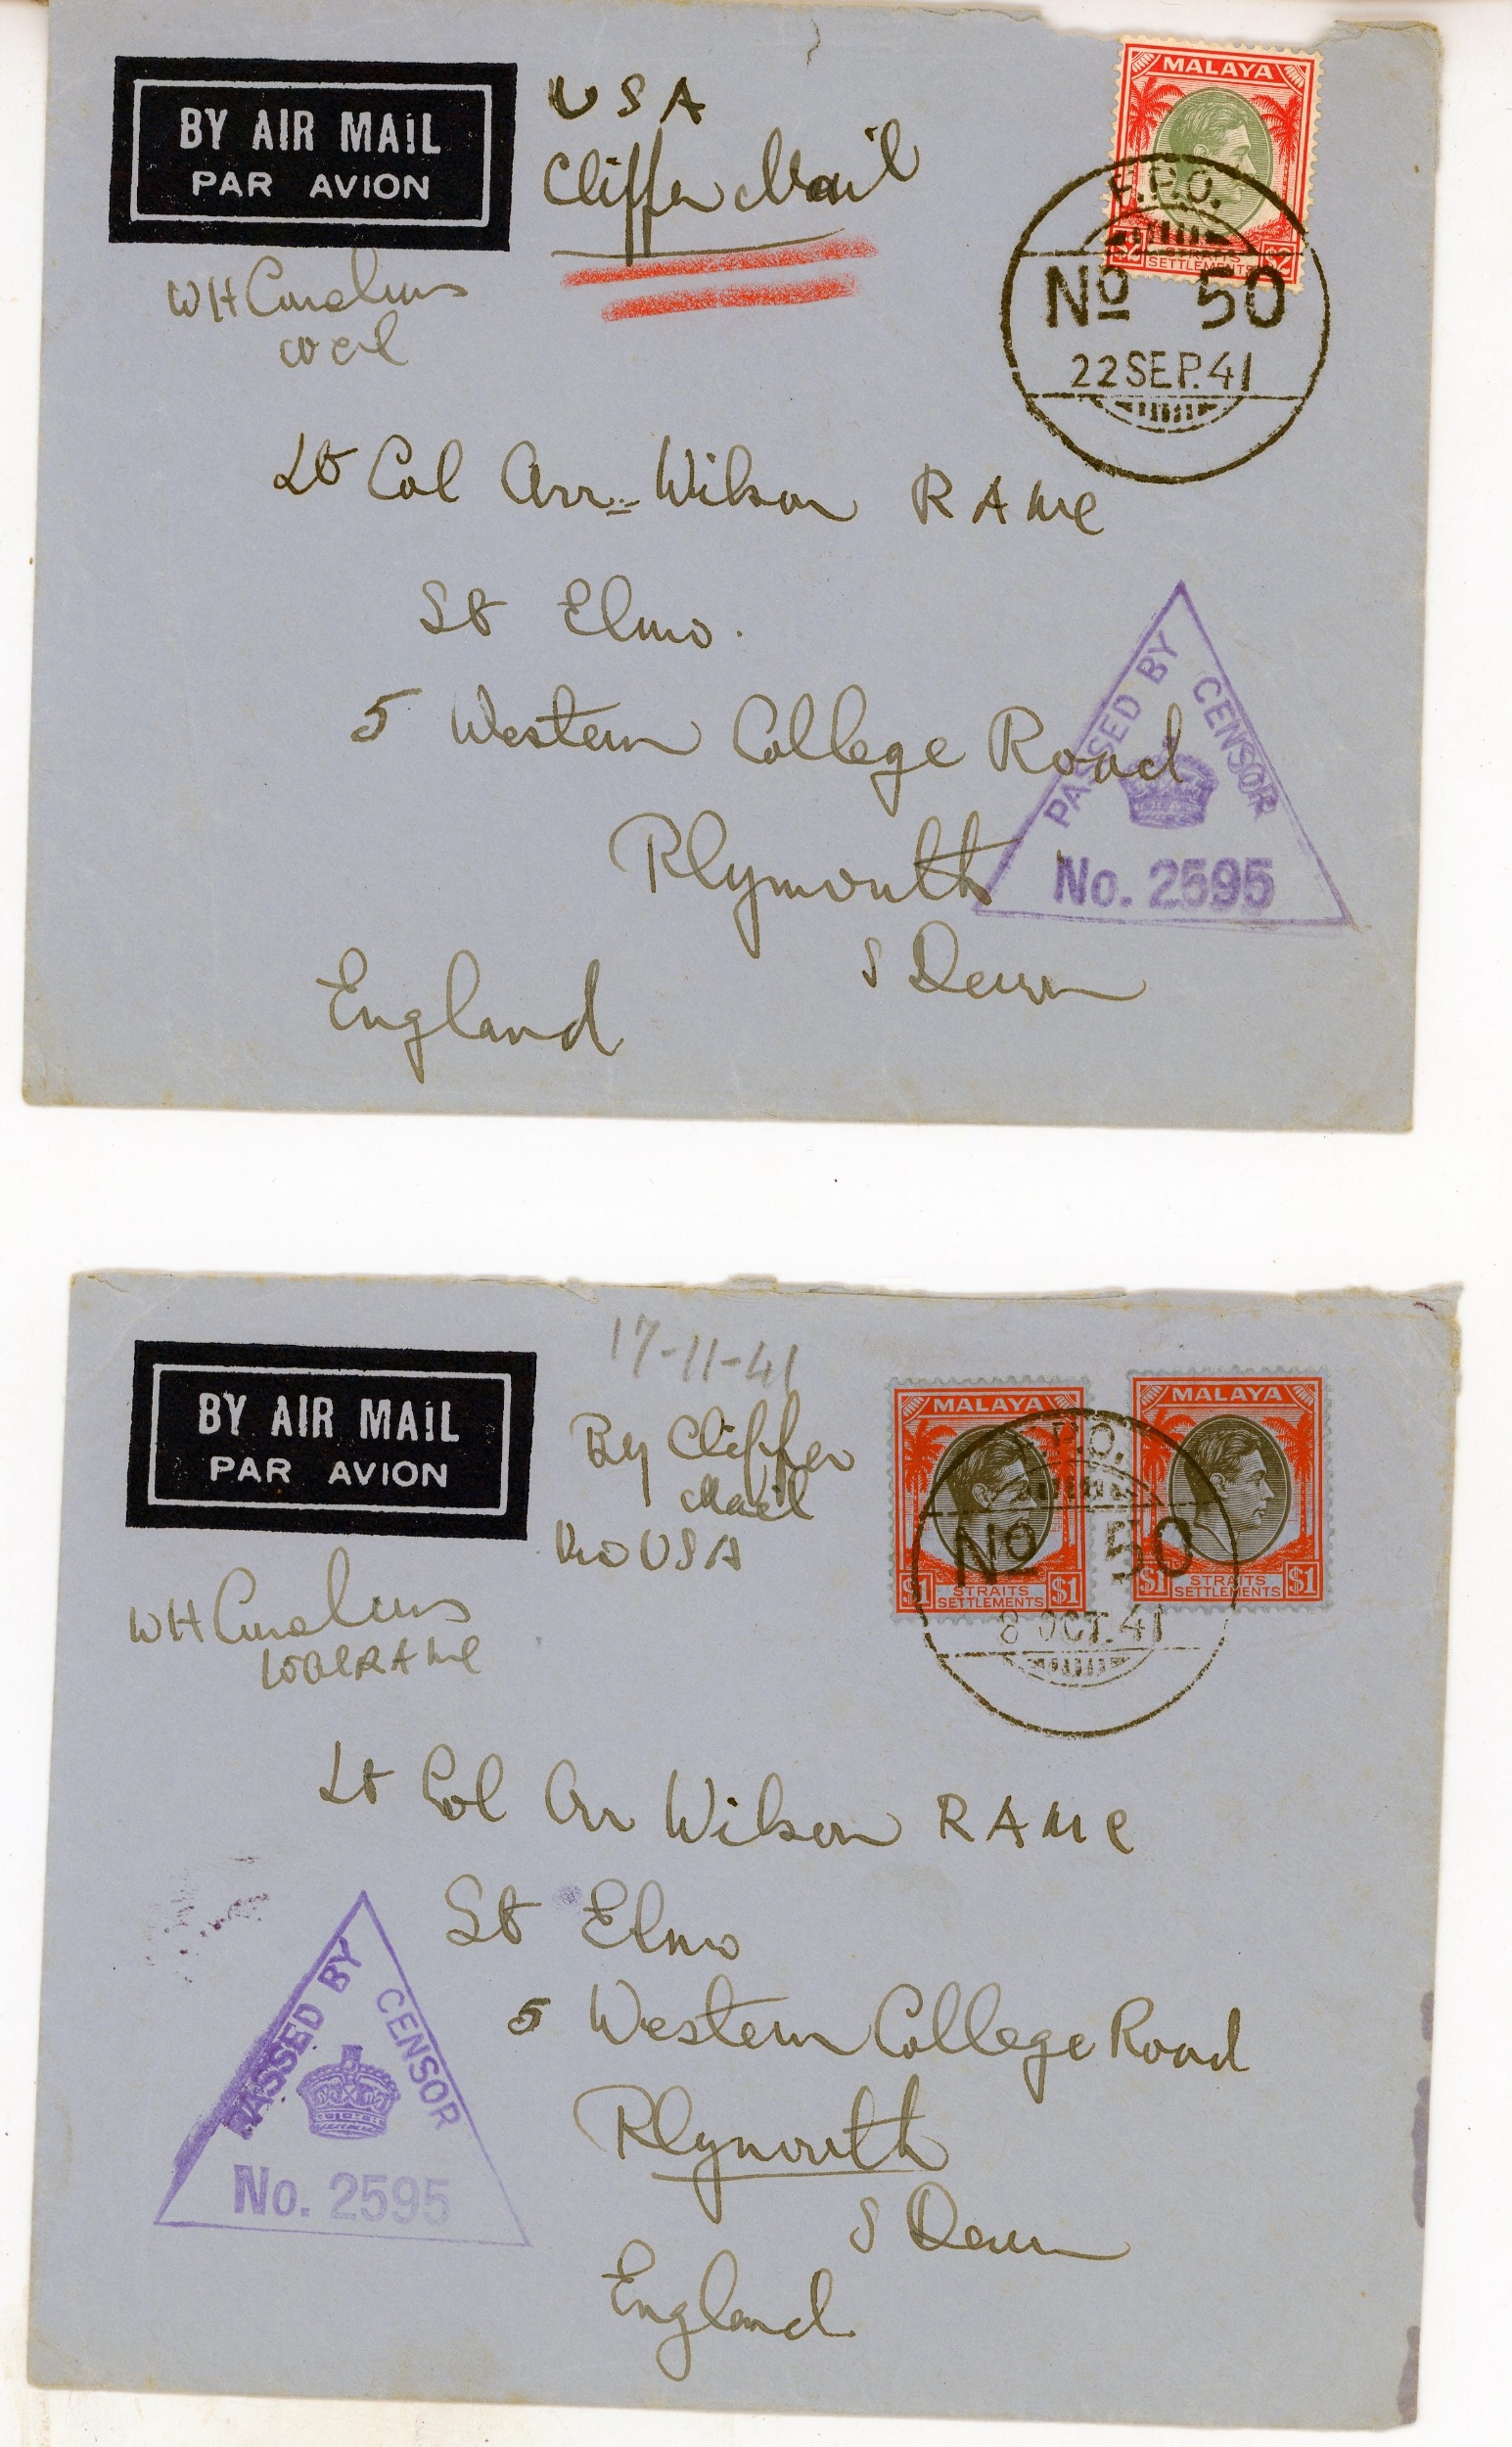 BY AIR MAIL
PAR AVION
USA
Cliffer Mail
MALAYA
$2 STRAITS SETTLEMENTS $2
F.P.O.
No 50
22 SEP. 41
W H
Lt Col Arr Wilson RAMC
St Elmo.
5 Western College Road
Plymouth
S Devon
England
PASSED BY CENSOR
No. 2595
BY AIR MAIL
PAR AVION
17-11-41
By Cliffer
Mail
via USA
MALAYA
$1 STRAITS SETTLEMENTS $1
MALAYA
$1 STRAITS SETTLEMENTS $1
P.O.
No 50
8 OCT. 41
W H
RAMC
Lt Col Arr Wilson RAMC
St Elmo
5 Western College Road
Plymouth
S Devon
England
PASSED BY CENSOR
No. 2595